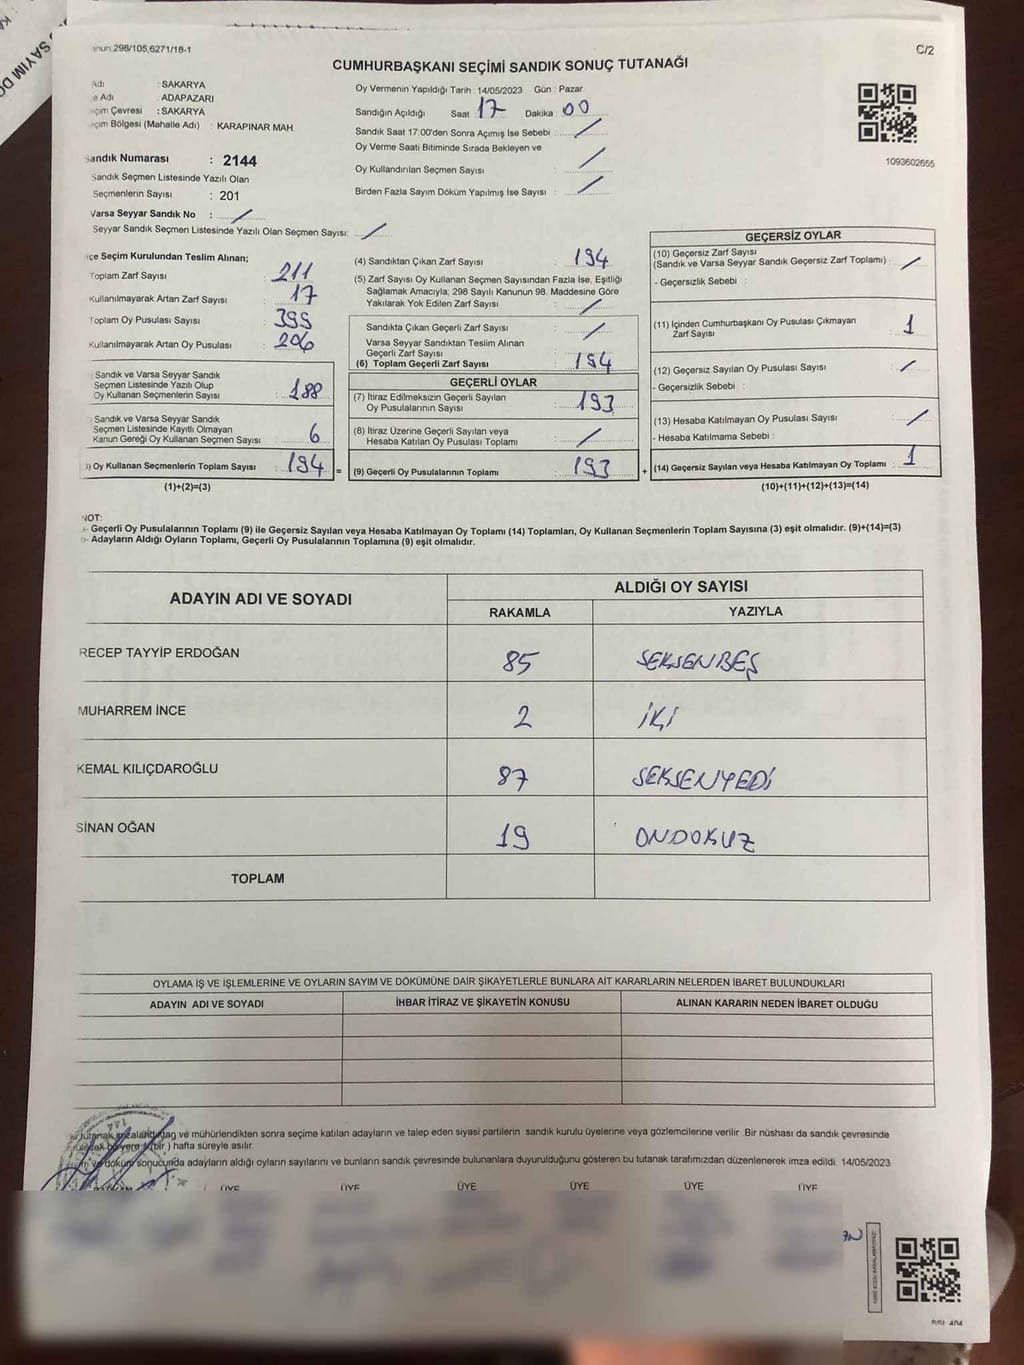 298/105,6271/18-1
C/2
CUMHURBAŞKANI SEÇİMİ SANDIK SONUÇ TUTANAĞI
Adı : SAKARYA
e Adı : ADAPAZARI
çim Çevresi : SAKARYA
çim Bölgesi (Mahalle Adı) : KARAPINAR MAH.
Sandık Numarası : 2144
Sandık Seçmen Listesinde Yazılı Olan
Seçmenlerin Sayısı : 201
Varsa Seyyar Sandık No : /
Seyyar Sandık Seçmen Listesinde Yazılı Olan Seçmen Sayısı: /
Oy Vermenin Yapıldığı Tarih : 14/05/2023 Gün : Pazar
Sandığın Açıldığı Saat 17 Dakika : 00
Sandık Saat 17:00'den Sonra Açımış İse Sebebi : /
Oy Verme Saati Bitiminde Sırada Bekleyen ve
Oy Kullandırılan Seçmen Sayısı : /
Birden Fazla Sayım Döküm Yapılmış İse Sayısı : /
1093602655
çe Seçim Kurulundan Teslim Alınan;
Toplam Zarf Sayısı : 211
Kullanılmayarak Artan Zarf Sayısı : 17
Toplam Oy Pusulası Sayısı : 399
Kullanılmayarak Artan Oy Pusulası : 206
Sandık ve Varsa Seyyar Sandık
Seçmen Listesinde Yazılı Olup
Oy Kullanan Seçmenlerin Sayısı : 188
Sandık ve Varsa Seyyar Sandık
Seçmen Listesinde Kayıtlı Olmayan
Kanun Gereği Oy Kullanan Seçmen Sayısı : 6
) Oy Kullanan Seçmenlerin Toplam Sayısı : 194
(1)+(2)=(3)
=
(4) Sandıktan Çıkan Zarf Sayısı : 194
(5) Zarf Sayısı Oy Kullanan Seçmen Sayısından Fazla İse, Eşitliği
Sağlamak Amacıyla; 298 Sayılı Kanunun 98. Maddesine Göre
Yakılarak Yok Edilen Zarf Sayısı : /
Sandıkta Çıkan Geçerli Zarf Sayısı : /
Varsa Seyyar Sandıktan Teslim Alınan
Geçerli Zarf Sayısı :
(6) Toplam Geçerli Zarf Sayısı : 194
GEÇERLİ OYLAR
(7) İtiraz Edilmeksizin Geçerli Sayılan
Oy Pusulalarının Sayısı : 193
(8) İtiraz Üzerine Geçerli Sayılan veya
Hesaba Katılan Oy Pusulası Toplamı : /
(9) Geçerli Oy Pusulalarının Toplamı : 193
+
GEÇERSİZ OYLAR
(10) Geçersiz Zarf Sayısı
(Sandık ve Varsa Seyyar Sandık Geçersiz Zarf Toplamı) : /
- Geçersizlik Sebebi :
(11) İçinden Cumhurbaşkanı Oy Pusulası Çıkmayan
Zarf Sayısı : 1
(12) Geçersiz Sayılan Oy Pusulası Sayısı : /
- Geçersizlik Sebebi :
(13) Hesaba Katılmayan Oy Pusulası Sayısı : /
- Hesaba Katılmama Sebebi :
(14) Geçersiz Sayılan veya Hesaba Katılmayan Oy Toplamı : 1
(10)+(11)+(12)+(13)=(14)
NOT:
- Geçerli Oy Pusulalarının Toplamı (9) ile Geçersiz Sayılan veya Hesaba Katılmayan Oy Toplamı (14) Toplamları, Oy Kullanan Seçmenlerin Toplam Sayısına (3) eşit olmalıdır. (9)+(14)=(3)
- Adayların Aldığı Oyların Toplamı, Geçerli Oy Pusulalarının Toplamına (9) eşit olmalıdır.
ADAYIN ADI VE SOYADI
ALDIĞI OY SAYISI
RAKAMLA YAZIYLA
RECEP TAYYİP ERDOĞAN 85 SEKSENBEŞ
MUHARREM İNCE 2 İKİ
KEMAL KILIÇDAROĞLU 87 SEKSENYEDİ
SİNAN OĞAN 19 ONDOKUZ
TOPLAM
OYLAMA İŞ VE İŞLEMLERİNE VE OYLARIN SAYIM VE DÖKÜMÜNE DAİR ŞİKAYETLERLE BUNLARA AİT KARARLARIN NELERDEN İBARET BULUNDUKLARI
ADAYIN ADI VE SOYADI İHBAR İTİRAZ VE ŞİKAYETİN KONUSU ALINAN KARARIN NEDEN İBARET OLDUĞU
tutanak ve mühürlendikten sonra seçime katılan adayların ve talep eden siyasi partilerin sandık kurulu üyelerine veya gözlemcilerine verilir .Bir nüshası da sandık çevresinde
(bir ) hafta süreyle asılır.
döküm sonucunda adayların aldığı oyların sayılarını ve bunların sandık çevresinde bulunanlara duyurulduğunu gösteren bu tutanak tarafımızdan düzenlenerek imza edildi. 14/05/2023
ÜYE ÜYE ÜYE ÜYE ÜYE ÜYE